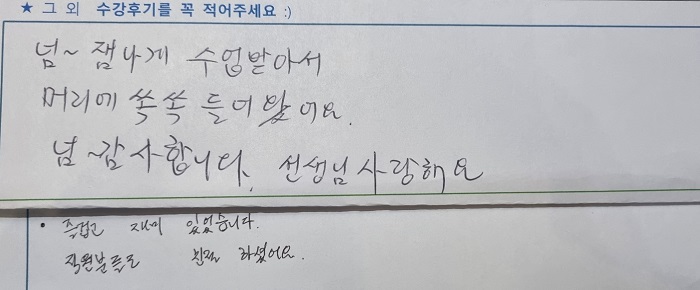 ★ 그 외 수강후기를 꼭 적어주세요 :)
넘~ 잼나게 수업받아서
머리에 쏙쏙 들어왔어요.
넘~감사합니다. 선생님 사랑해요
• 즐겁고 재미 있었습니다.
직원분들도 친절 하셨어요.